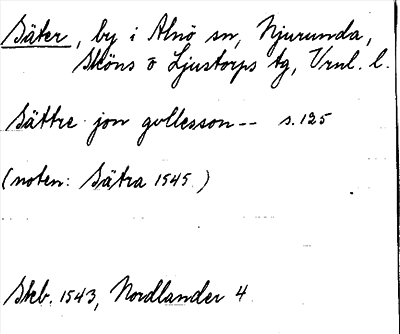 Säter, by i Alnö sn, Njurunda,
Sköns o Ljustorps tg, Vrnl. l.
Sättre jon gvllesson-- s. 125
(noten: Sätra 1545.)
Skb. 1543, Nordlander 4